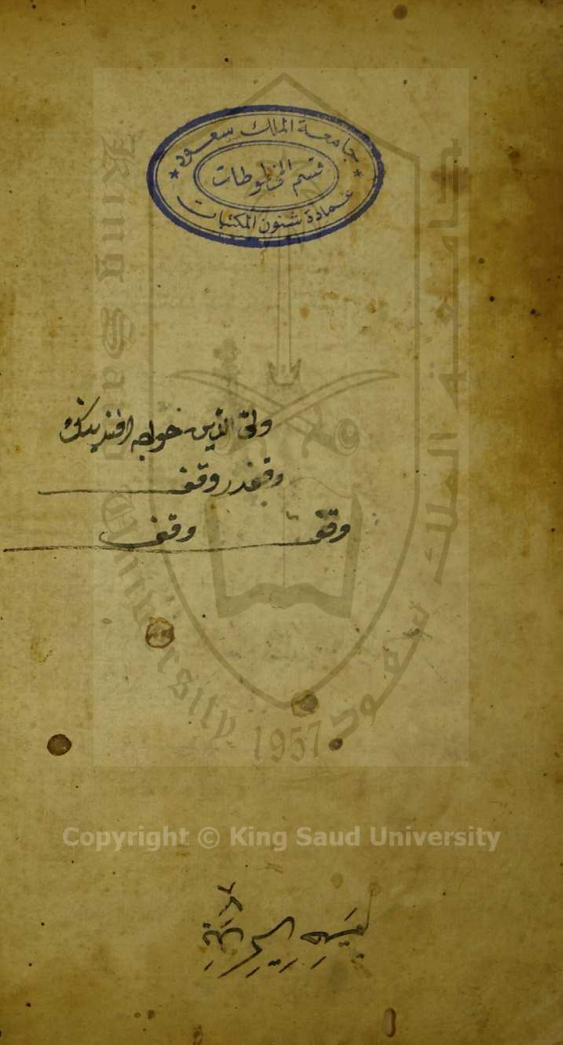 جامعة الملك سعود
قسم المخطوطات
عمادة شئون المكتبات
ولي الدين خواجه افندينك
وقفدر وقف
وقف وقف
King Saud University
جامعة الملك سعود
1957
Copyright © King Saud University